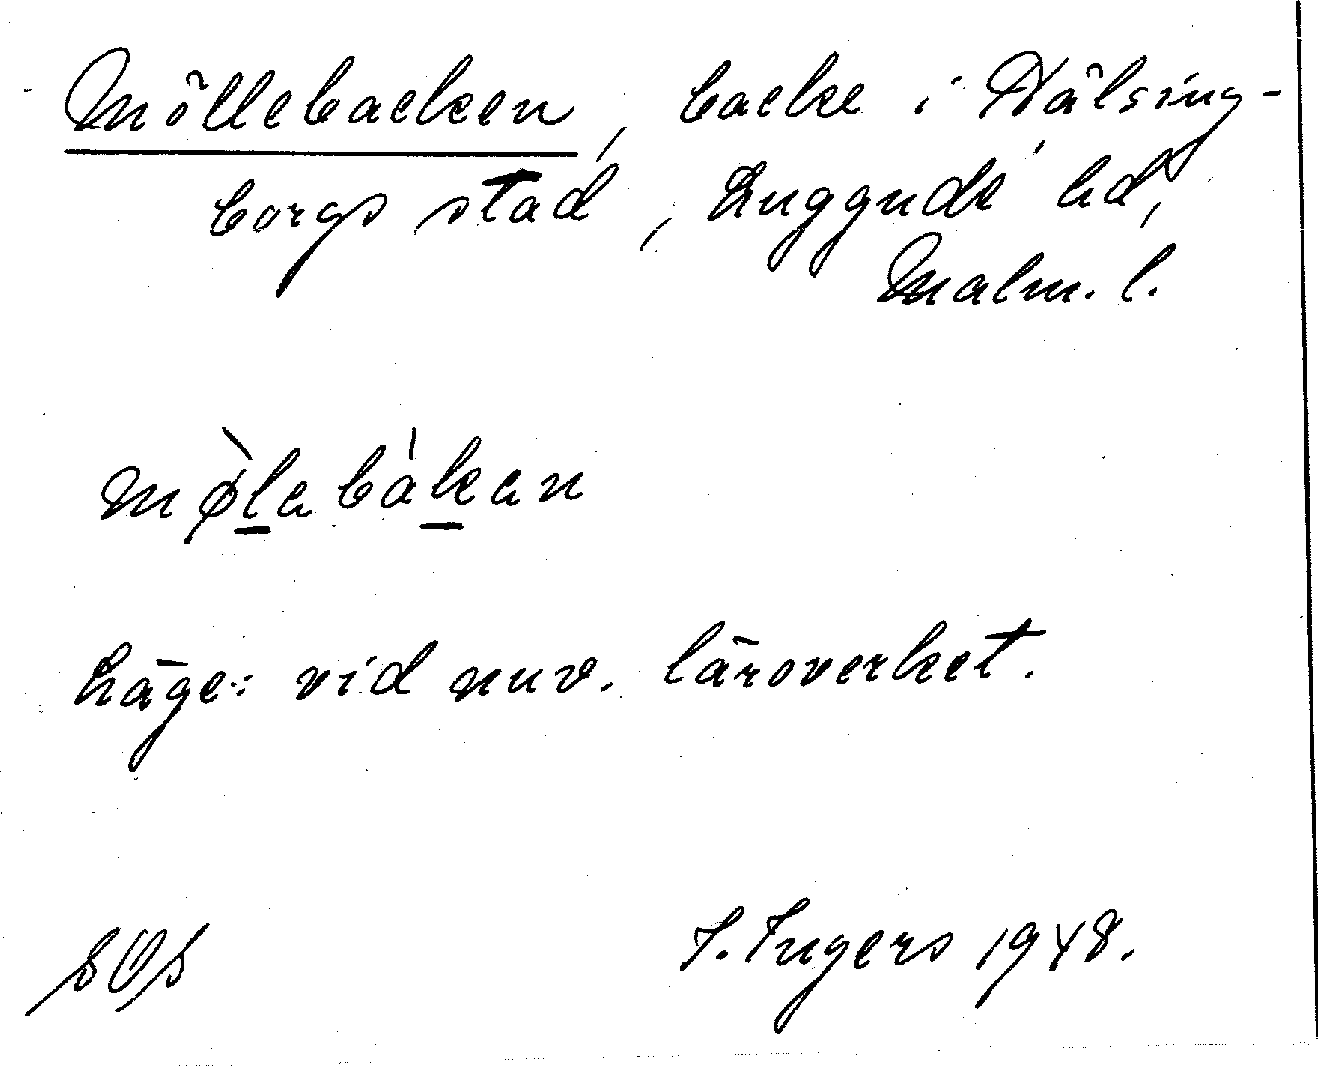 Möllebacken, backe i Hälsing-
borgs stad, Luggude hd,
Malm. l.
mø̀labákan
Läge: vid nuv. läroverket.
I. Ingers 1948.